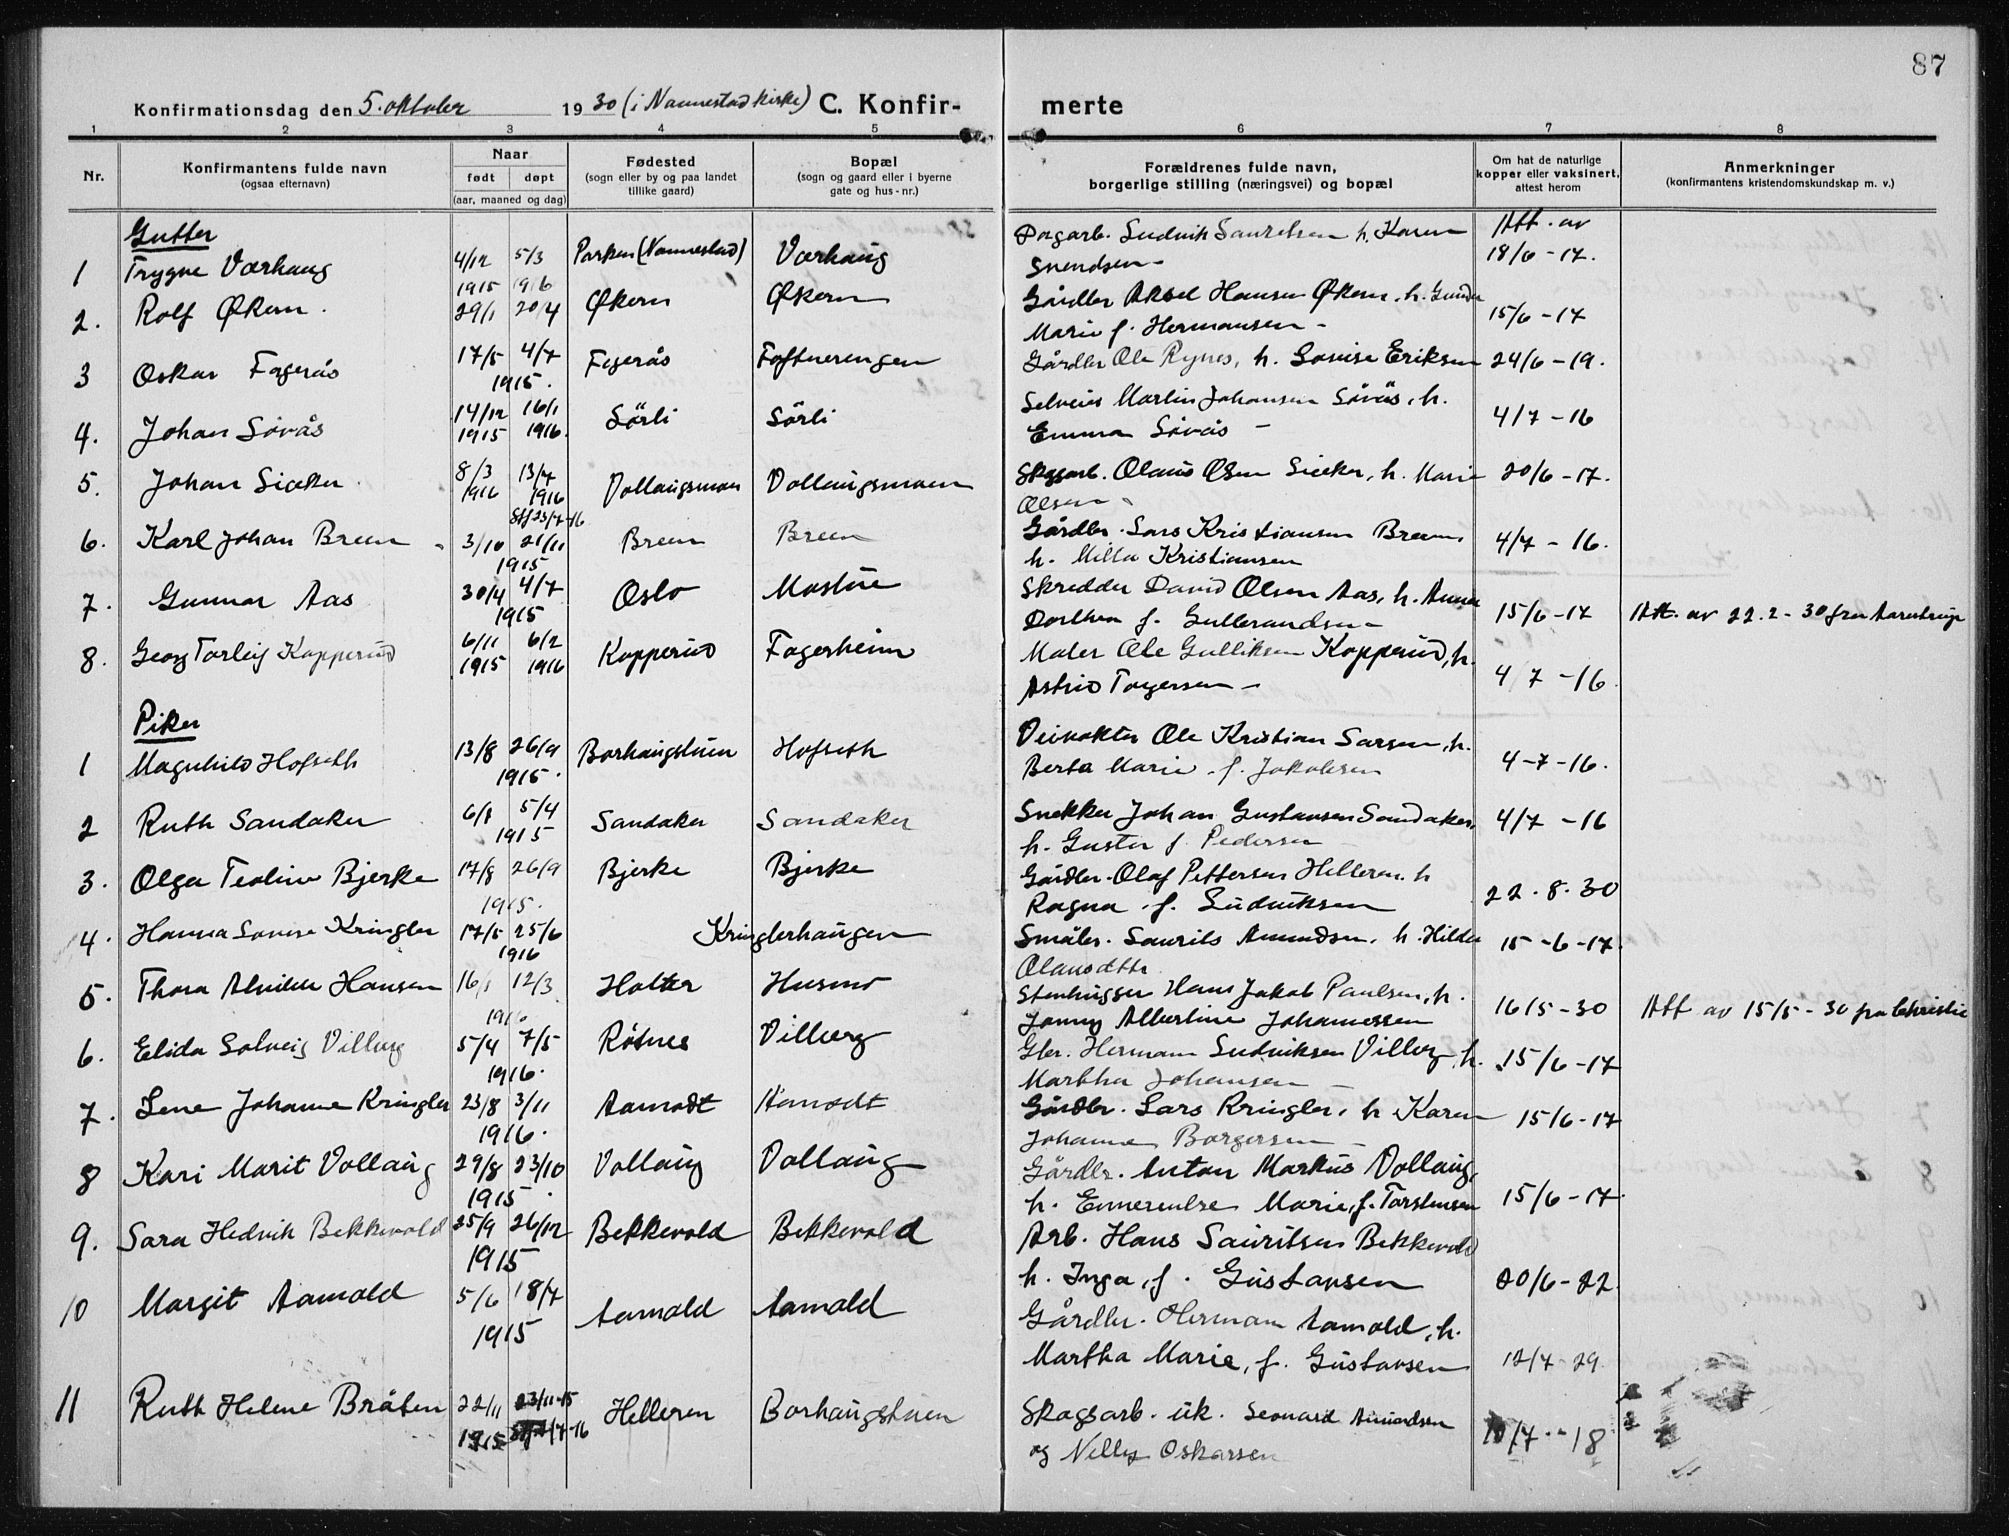 87
Konfirmationsdag den 5. oktober 1930 (i Nannestad kirke) C. Konfir- merte
1 2 3 4 5 6 7 8
Nr. Konfirmantens fulde navn (ogsaa efternavn) Naar født døpt (aar, maaned og dag) Fødested (sogn eller by og paa landet tillike gaard) Bopæl (sogn og gaard eller i byerne gate og hus-nr.) Forældrenes fulde navn, borgerlige stilling (næringsvei) og bopæl Om hat de naturlige kopper eller vaksinert, attest herom Anmerkninger (konfirmantens kristendomskundskap m. v.)
Gutter
1 Trygve Værhaug 4/12 1915 5/3 1916 Parken (Nannestad) Værhaug Dagarb. Ludvik Lauritsen h. Karen Svendsen - Att. av 18/6 - 17.
2. Rolf Økern. 29/1 20/4 Økern Økern Gårdbr Aksel Hansen Økern, h. Gunda Marie f. Hermansen - 15/6 - 17
3 Oskar Fagerås 17/5 4/7 1915. Fagerås Toftnerengen Gårdbr Ole Rynes, h. Lovise Eriksen 24/6 - 19.
4. Johan Sövås 14/12 1915 16/1 1916. Sörli Sörli Selveier Martin Johansen Sövås, h. Emma Sövås - 4/7 - 16
5. Johan Sieker. 8/3 1916 13/7 1916 Vollaugsmoen Vollaugsmoen Skogsarb. Olaus Olsen Sieker, h. Marie Olsen 20/6 - 17.
6. Karl Johan Breen 3/10 21/11 1915 Stf 23/7-16 Breen Breen Gårdbr. Lars Kristiansen Breen, h. Milla Kristiansen 4/7 - 16.
7. Gunnar Aas 30/4 4/7 1915 Oslo Mostue Skredder David Olsen Aas, h. Anna Dorthea f. Gullerandsen - 15/6 - 17 Att. av 22.2 - 30 fra Aarestrup
8. Georg Torleif Kopperud 6/11 1915 6/2 1916 Kopperud Fagerheim Maler Ole Gulliksen Kopperud, h. Astrid Torgersen - 4/7 - 16
Piker
1 Magnhild Hofseth 13/8 26/9 1915. Borhaugstuen Hofseth Veivokter Ole Kristian Larsen, h. Berta Marie f. Jakobsen 4-7-16.
2 Ruth Sandaker 6/1 5/4 1915 Sandaker Sandaker Snekker Johan Gustavsen Sandaker, h. Gusta f. Pedersen 4/7 - 16
3. Olga Teoline Bjerke 17/8 26/9 1915. Bjerke Bjerke Gårdbr. Olaf Pettersen Helleren h Ragna f. Ludviksen 22.8.30
4. Hanna Lovise Kringler 17/5 25/6 1916 Kringlerhaugen Småbr. Laurits Amundsen, h. Hilda Olausdttr. 15-6-17
5. Thora Alvilde Hansen 16/1 12/3 Holter Husmo Stenhugger Hans Jakob Paulsen, h. Jenny Albertine Johannessen 16/5 - 30 Att av 15/5 - 30 fra Christie
6. Elida Solveig Villberg 5/4 7/5 1916. Råtnes Villberg Gbr. Herman Ludviksen Villberg, h. Martha Johansen - 15/6 - 17
7. Lene Johanne Kringler 23/8 3/11 1916. Aamodt Aamodt Gårdbr. Lars Kringler, h Karen Johanne Borgersen - 15/6 - 17
8 Kari Marit Vollaug 29/8 23/10 1915. Vollaug Vollaug Gårdbr. Anton Markus Vollaug, h. Emerentse Marie, f. Torstensen 15/6 - 17.
9. Sara Hedvik Bekkevold 25/9 26/12 1915 Bekkevold Bekkevold Arb. Hans Lauritsen Bekkevold h. Inga, f. Gustavsen 20/6 - 22.
10 Margit Aamold 5/6 18/7 1915 Aamold Aamold Gårdbr. Herman Aamold, h. Martha Marie, f. Gustavsen 12/7 - 29.
11 Ruth Helene Bråten 22/11 1915 23/11-15 Helleren Borhaugstuen Skogsarb. uk. Leonard Amundsen og Nelly Oskarsen 10/7 - 18